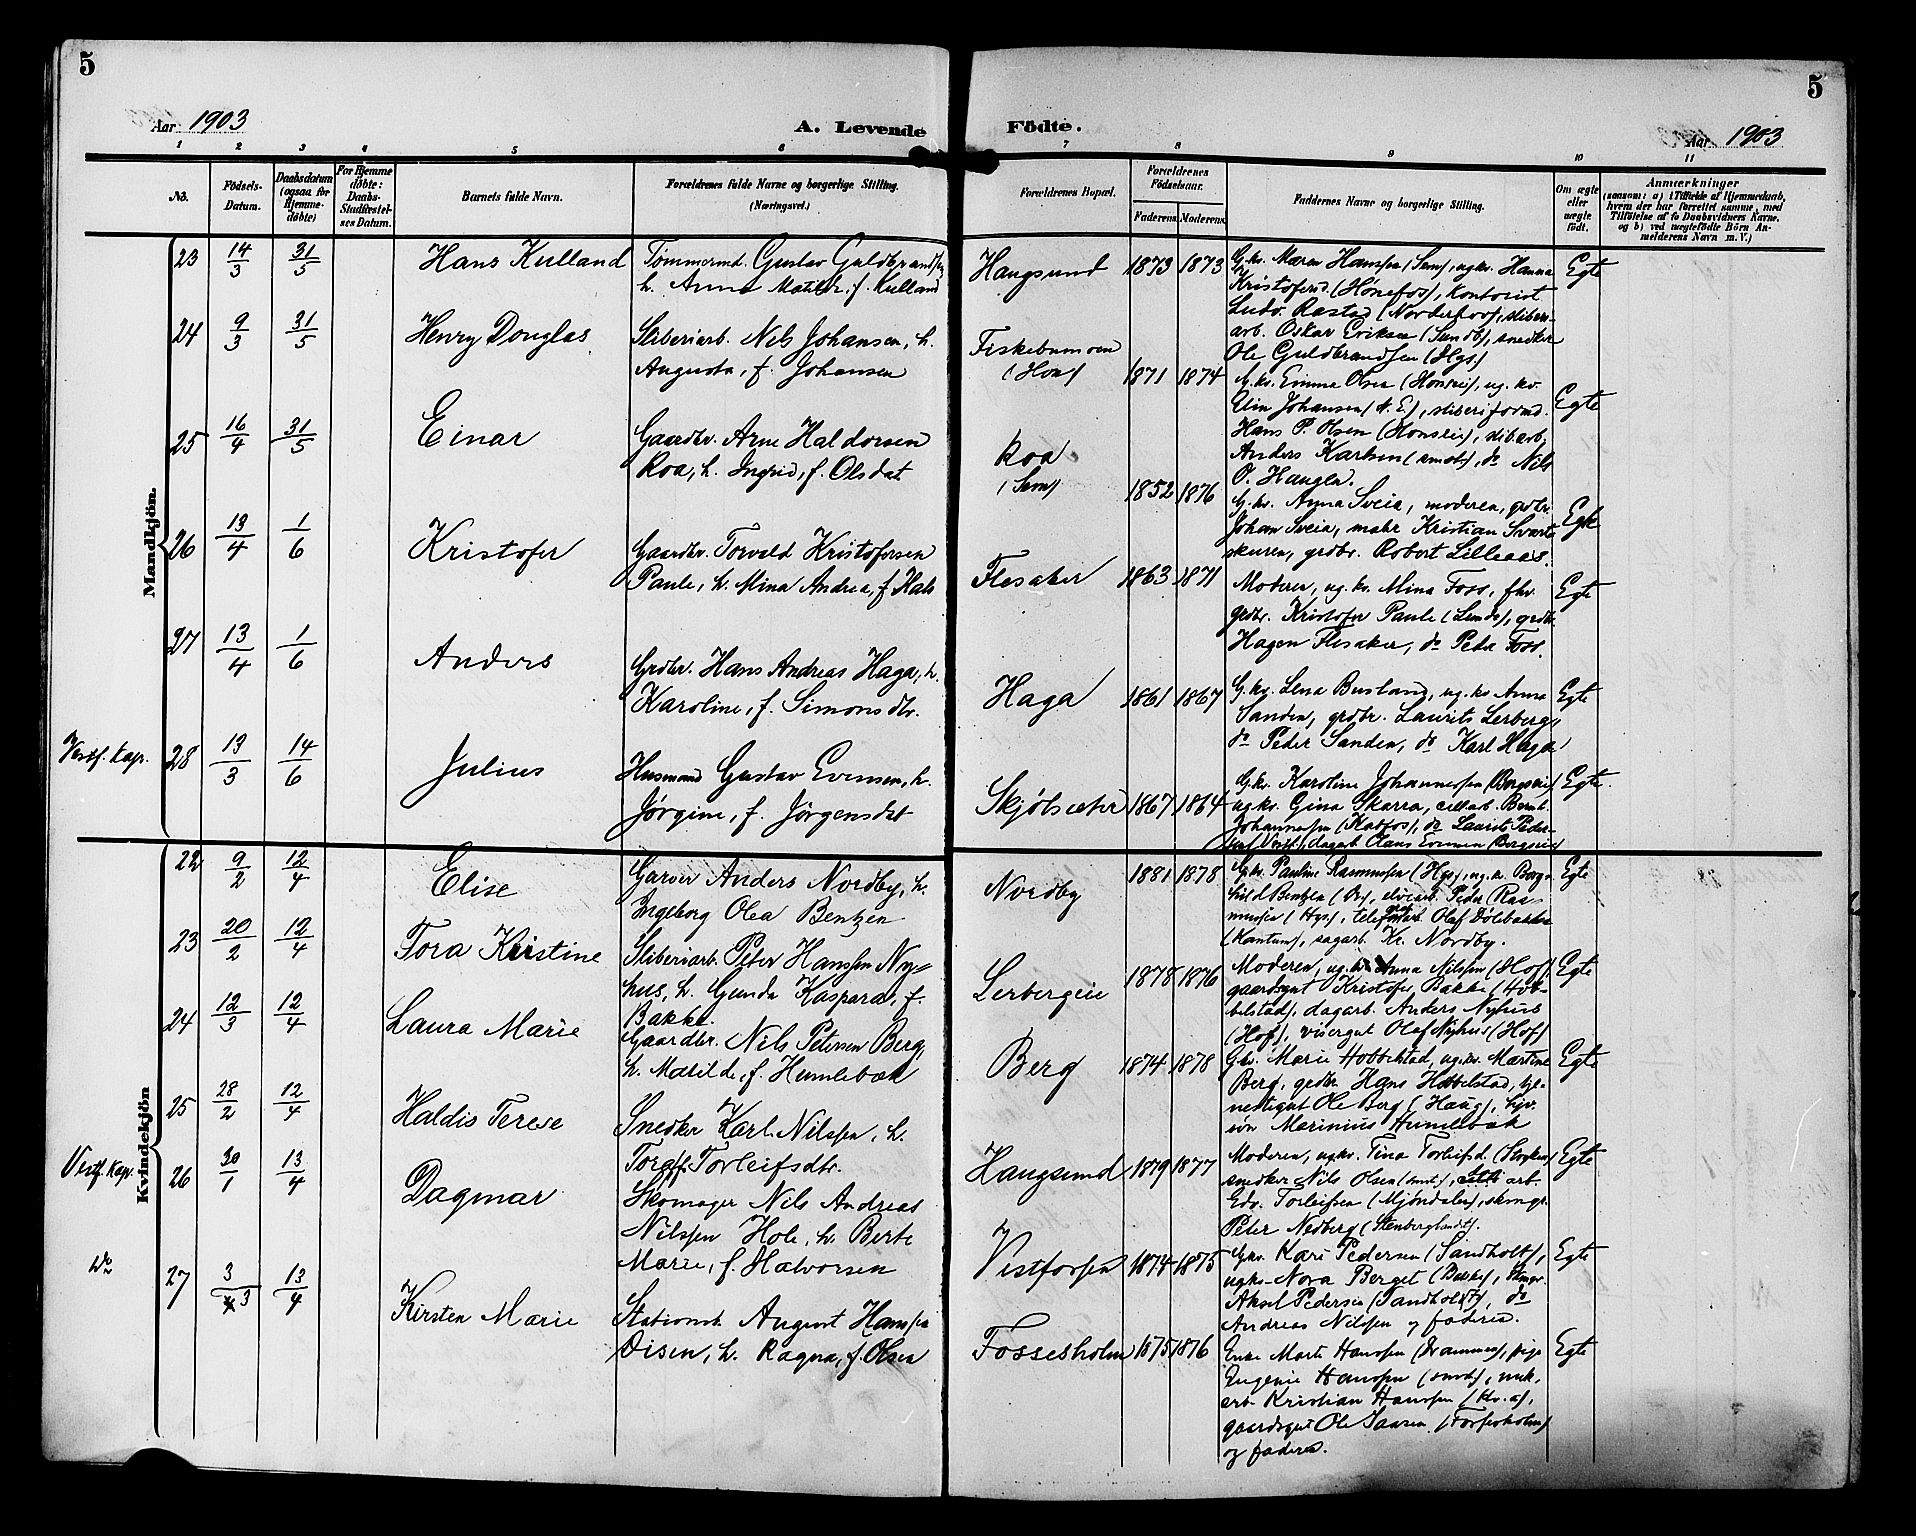 5
5
Aar 1903
A. Levende
Födte.
Aar 1903
1 2 3 4 5 6 7 8 9 10 11
No.
Födsels-
Datum.
Daabsdatum
(ogsaa for
Hjemme-
döbte)
For Hjemme
döbte:
Daabs-
Stadfæstel-
ses Datum.
Barnets fulde Navn.
Forældrenes fulde Navne og borgerlige Stilling.
(Næringsvei.)
Forældrenes Bopæl.
Forældrenes
Födselsaar.
Faderens. Moderens.
Faddernes Navne og borgerlige Stilling.
Om ægte
eller
uægte
födt.
Anmærkninger
(saasom: a) i Tilfælde af Hjemmedaab,
hvem der har forrettet samme, med
Tilföielse af to Daabsvidners Navne.
og b) ved uægtefödte Börn An-
melderens Navn m. V.)
Mandkjön.
23 14/3 31/5 Hans Kulland
Tömmermd. Gustav Guldbrandsen
h. Anna Mathilr. f. Kulland
Haugsund 1873 1873
G.kv. Maren Hanssen (Sem), ugkv. Hanna
Kristofersd. (Hønefos), Kontorist
Ludv. Rastad (Norderhov), sliberi-
arb. Oskar Eriksen (Sundb), snedker
Ole Guldbrandsen (Hgs.)
Egte
24 9/3 31/5 Henry Douglas
Sliberiarb. Nils Johansen, h.
Augusta, f. Johansen
Fiskebumoen
(Hon) 1871 1874
G.kv. Emma Olsen (Honsei), ug. kv.
Elin Johansen (N. E.), sliberiformd.
Hans P. Olsen (Honsei), slib.arb.
Anders Karlsen (smst), do Nils
O. Haugen.
Egte
25 16/4 31/5 Einar
Gaardbr. Arne Haldorsen
Roa, h. Ingrid, f. Olsdat
Roa
(Sem) 1852 1876
G.kv. Anna Sveia, moderen, grdbr.
Johan Sveia, mahr Kristian Svarte
skuren, grdbr. Robert Lilleaas.
Egte
26 13/4 1/6 Kristofer
Gaardbr. Torvald Kristofersen
Paule, h. Mina Andrea, f Hals
Flesaker 1863 1871
Moderen, ug. kv. Mina Foss, fhv.
grdbr. Kristofer Paule (Lunde), grdbr.
Hagen Flesaker, do Peder Foss.
Egte
27 13/4 1/6 Anders
Grdbr. Hans Andreas Haga, h.
Karoline, f. Simonsdtr.
Haga 1861 1867
G.kv. Lena Busland, ug.kv Anna
Sanden, grdbr. Laurits Lerberg,
do Peder Sanden, do Karl Haga
Egte
Vestf. Kap. 28 13/3 14/6 Julius
Husmand Gustav Evensen, h.
Jørgine, f. Jörgensdat
Skjölsæter 1867 1864
G.kv. Karoline Johannessen (Borgerei)
ug.kv. Gina Skarra, cell.arb. Bernt
Johannessen (Katfos), do Laurits Peder-
sen (Vestf.), dagarb. Hans Evensen (Borgerei)
Egte.
Kvindekjön
22 9/2 12/4 Elise
Garver Anders Nordby, h.
Ingeborg Olea Bentzen
Nordby 1881 1878
G.kv. Pauline Rasmussen (Hgs), ug.kv. Borg-
hild Bentzen (Do), elvearb. Peder Ras-
mussen (Hgs.), telefonarb. Olaf Dölebakken
(Kantum), sagarb. Kr. Nordby.
Egte
23 20/2 12/4 Tora Kristine
Sliberiarb. Peter Hanssen Ny-
hus, h. Gunda Kaspara, f.
Bakke.
Lerbergeie 1878 1876
Moderen, ug.kv Anna Nilssen (Hof),
gaardsgut Kristofer Bakke (Hob-
belstad), dagarb. Anders Nyhus
(Hof), visergut Olaf Nyhus (Hof)
Egte
24 12/3 12/4 Laura Marie
Gaardbr. Nils Petersen Berg,
h. Matilde, f. Humlebæk
Berg 1874 1878
Gkv. Marie Hobbelstad, ugkv. Martine
Berg, grdbr Hans Hobbelstad, tje-
nestegut Ole Berg (Haug), hjv.
sön Marinius Humlebæk
Egte
25 28/2 12/4 Haldis Terese
Snedker Karl Nilssen, h.
Tora, f. Torleifsdtr.
Haugsund 1879 1877
Moderen, ugkv. Tina Torleifsd (Stryken)
snedker Nils Olsen (smst), arb
Edv. Torleifsen (Mjöndalen), skmgr.
Peter Nedberg (Stenberglandet).
Egte
Vestf. Kap. 26 30/1 13/4 Dagmar
Skomager Nils Andreas
Nilssen Hole, h. Berte
Marie, f. Halvorsen
Vestfossen 1874 1875
Gkv. Kari Pedersen (Sandholt),
ugkv. Nora Berget (Bakke), skmgr.
Aksel Pedersen (Sandholt), do
Andreas Nilssen og faderen.
Egte
Do 27 3/3 13/4 Kirsten Marie
Stationsb. August Hanssen
Disen, h. Ragna, f. Olsen
Fossesholm 1875 1876
Enke Marte Hanssen (Drammen), pige
Eugenie Hanssen (smst), mek.
arb. Kristian Hanssen (Kr.a),
gaardsgut Ole Saaren (Fossesholm)
og faderen.
Egte